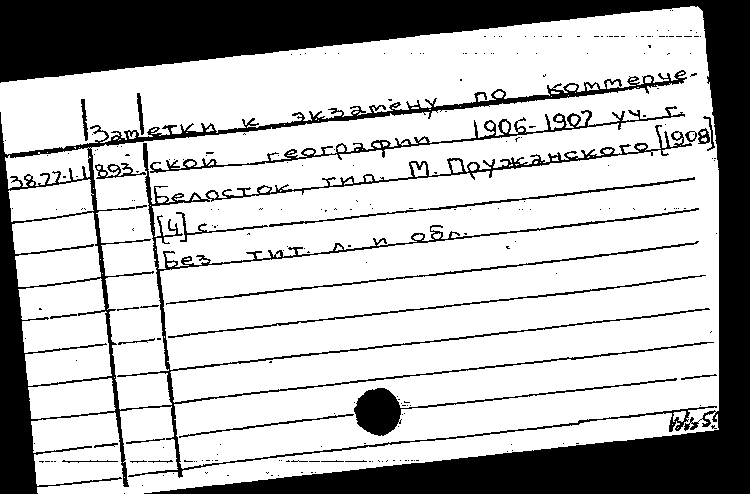 Заметки к экзамену по коммерче-
38.77.1.1 893. ской географии 1906-1907 уч. г.
Белосток, тип. М. Пружанского, [1908]
[4] с.
Без тит. л. и обл.